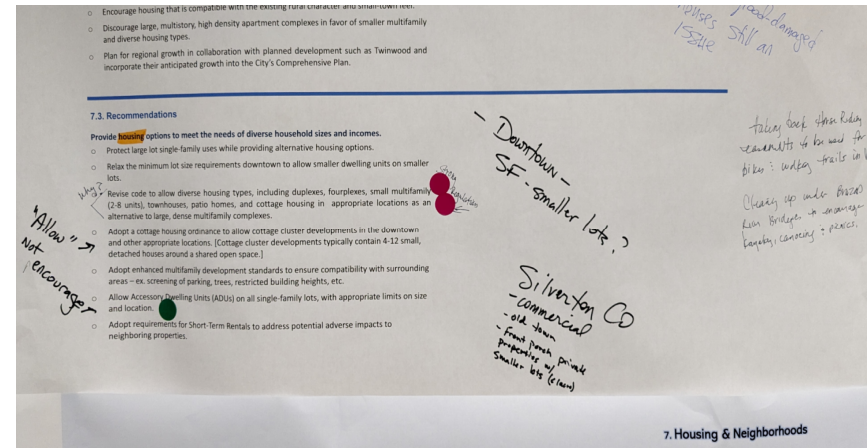 Encourage housing that is compatible with the existing rural character and small-town feel.
Discourage large, multistory, high density apartment complexes in favor of smaller multifamily
and diverse housing types.
Plan for regional growth in collaboration with planned development such as Twinwood and
incorporate their anticipated growth into the City's Comprehensive Plan.
still an
issue
7.3. Recommendations
Provide housing options to meet the needs of diverse household sizes and incomes.
Protect large lot single-family uses while providing alternative housing options.
Relax the minimum lot size requirements downtown to allow smaller dwelling units on smaller
lots.
Why?
Revise code to allow diverse housing types, including duplexes, fourplexes, small multifamily
(2-8 units), townhouses, patio homes, and cottage housing in appropriate locations as an
alternative to large, dense multifamily complexes.
Adopt a cottage housing ordinance to allow cottage cluster developments in the downtown
and other appropriate locations. [Cottage cluster developments typically contain 4-12 small,
detached houses around a shared open space.]
Adopt enhanced multifamily development standards to ensure compatibility with surrounding
areas – ex. screening of parking, trees, restricted building heights, etc.
Allow Accessory Dwelling Units (ADUs) on all single-family lots, with appropriate limits on size
and location.
Adopt requirements for Short-Term Rentals to address potential adverse impacts to
neighboring properties.
"Allow"
Not
encourage
- Downtown -
SF - smaller lots?
Silverton Co
- commercial
- old town
- Front porch private
properties w/
smaller lots
taking back Horse Riding
easements to be used for
bikes : walking trails in
Cleaning up under Brazos
River Bridges to encourage
kayaking, canoeing : picnics.
7. Housing & Neighborhoods